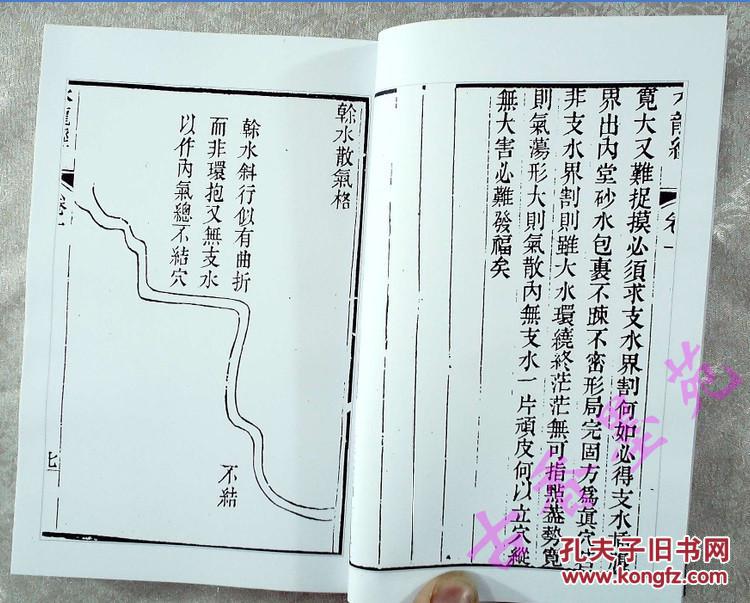 水龍經
卷一
寬大又難捉摸必須求支水界割何如必得支水
界出內堂砂水包裹不踈不密形局完固方為眞穴
非支水界割則雖大水環繞終茫茫無可指點葢勢寬
則氣蕩形大則氣散內無支水一片頑皮何以立穴縱
無大害必難發福矣
榦水散氣格
榦水斜行似有曲折
而非環抱又無支水
以作內氣總不結穴
不結
水龍經
卷一
七
古香墨苑
孔夫子旧书网
www.kongfz.com